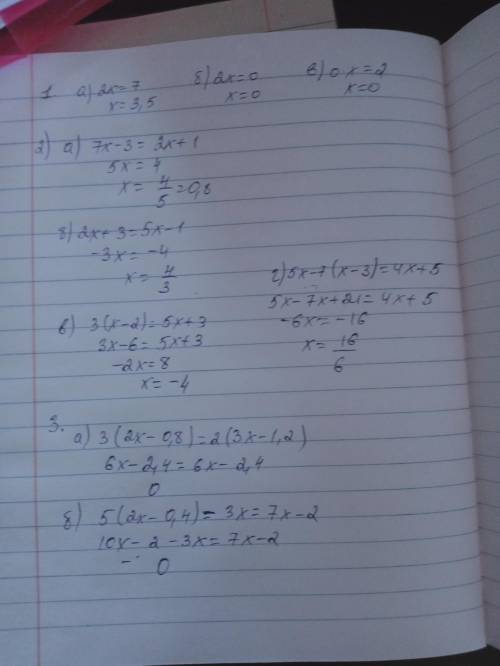 1 а) 2x=7 б) 2x=0 в) 0 x=2
x=3,5 x=0 x=0
2) а) 7x-3=2x+1
5x=4
x= 4/5 =0,8
б) 2x+3=5x-1
-3x=-4
x= 4/3
в) 3(x-2)=5x+3
3x-6=5x+3
-2x=8
x=-4
г) 5x-7(x-3)=4x+5
5x-7x+21=4x+5
-6x=-16
x= 16/6
3.
а) 3(2x-0,8)=2(3x-1,2)
6x-2,4=6x-2,4
0
б) 5(2x-0,4)-3x=7x-2
10x-2-3x=7x-2
0